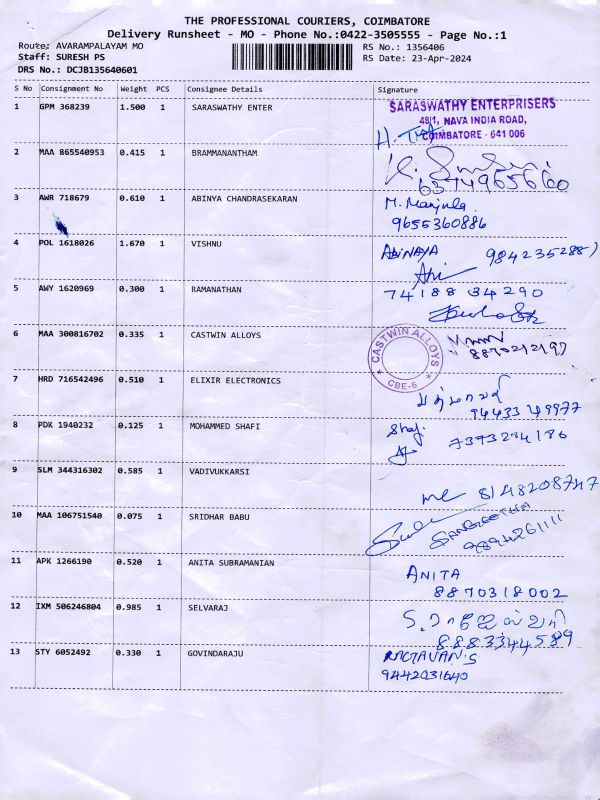 THE PROFESSIONAL COURIERS, COIMBATORE
Delivery Runsheet - MO - Phone No.:0422-3505555 - Page No.:1
Route: AVARAMPALAYAM MO
RS No.: 1356406
Staff: SURESH PS
RS Date: 23-Apr-2024
DRS No.: DCJB135640601
S No Consignment No Weight PCS Consignee Details Signature
1 GPM 368239 1.500 1 SARASWATHY ENTER
SARASWATHY ENTERPRISERS
48/1, NAVA INDIA ROAD,
COIMBATORE - 641 006
2 MAA 865540953 0.415 1 BRAMMANANTHAM
6374965660
3 AWR 718679 0.610 1 ABINYA CHANDRASEKARAN
M. Manjula
9655360886
4 POL 1618026 1.670 1 VISHNU
ABINAYA 9842352887
Abi
5 AWY 1620969 0.300 1 RAMANATHAN
74188 34290
6 MAA 300816702 0.335 1 CASTWIN ALLOYS
CASTWIN ALLOYS
CBE-6
8870212197
7 HRD 716542496 0.510 1 ELIXIR ELECTRONICS
94433 49977
8 PDK 1940232 0.125 1 MOHAMMED SHAFI
Shaf. 7373294186
9 SLM 344316302 0.585 1 VADIVUKKARSI
8148208747
10 MAA 106751540 0.075 1 SRIDHAR BABU
SANGEETHA
11 APK 1266190 0.520 1 ANITA SUBRAMANIAN
ANITA
8870318002
12 IXM 506246804 0.985 1 SELVARAJ
8883344589
13 STY 6052492 0.330 1 GOVINDARAJU
RAGTAVAN'S
9442031640